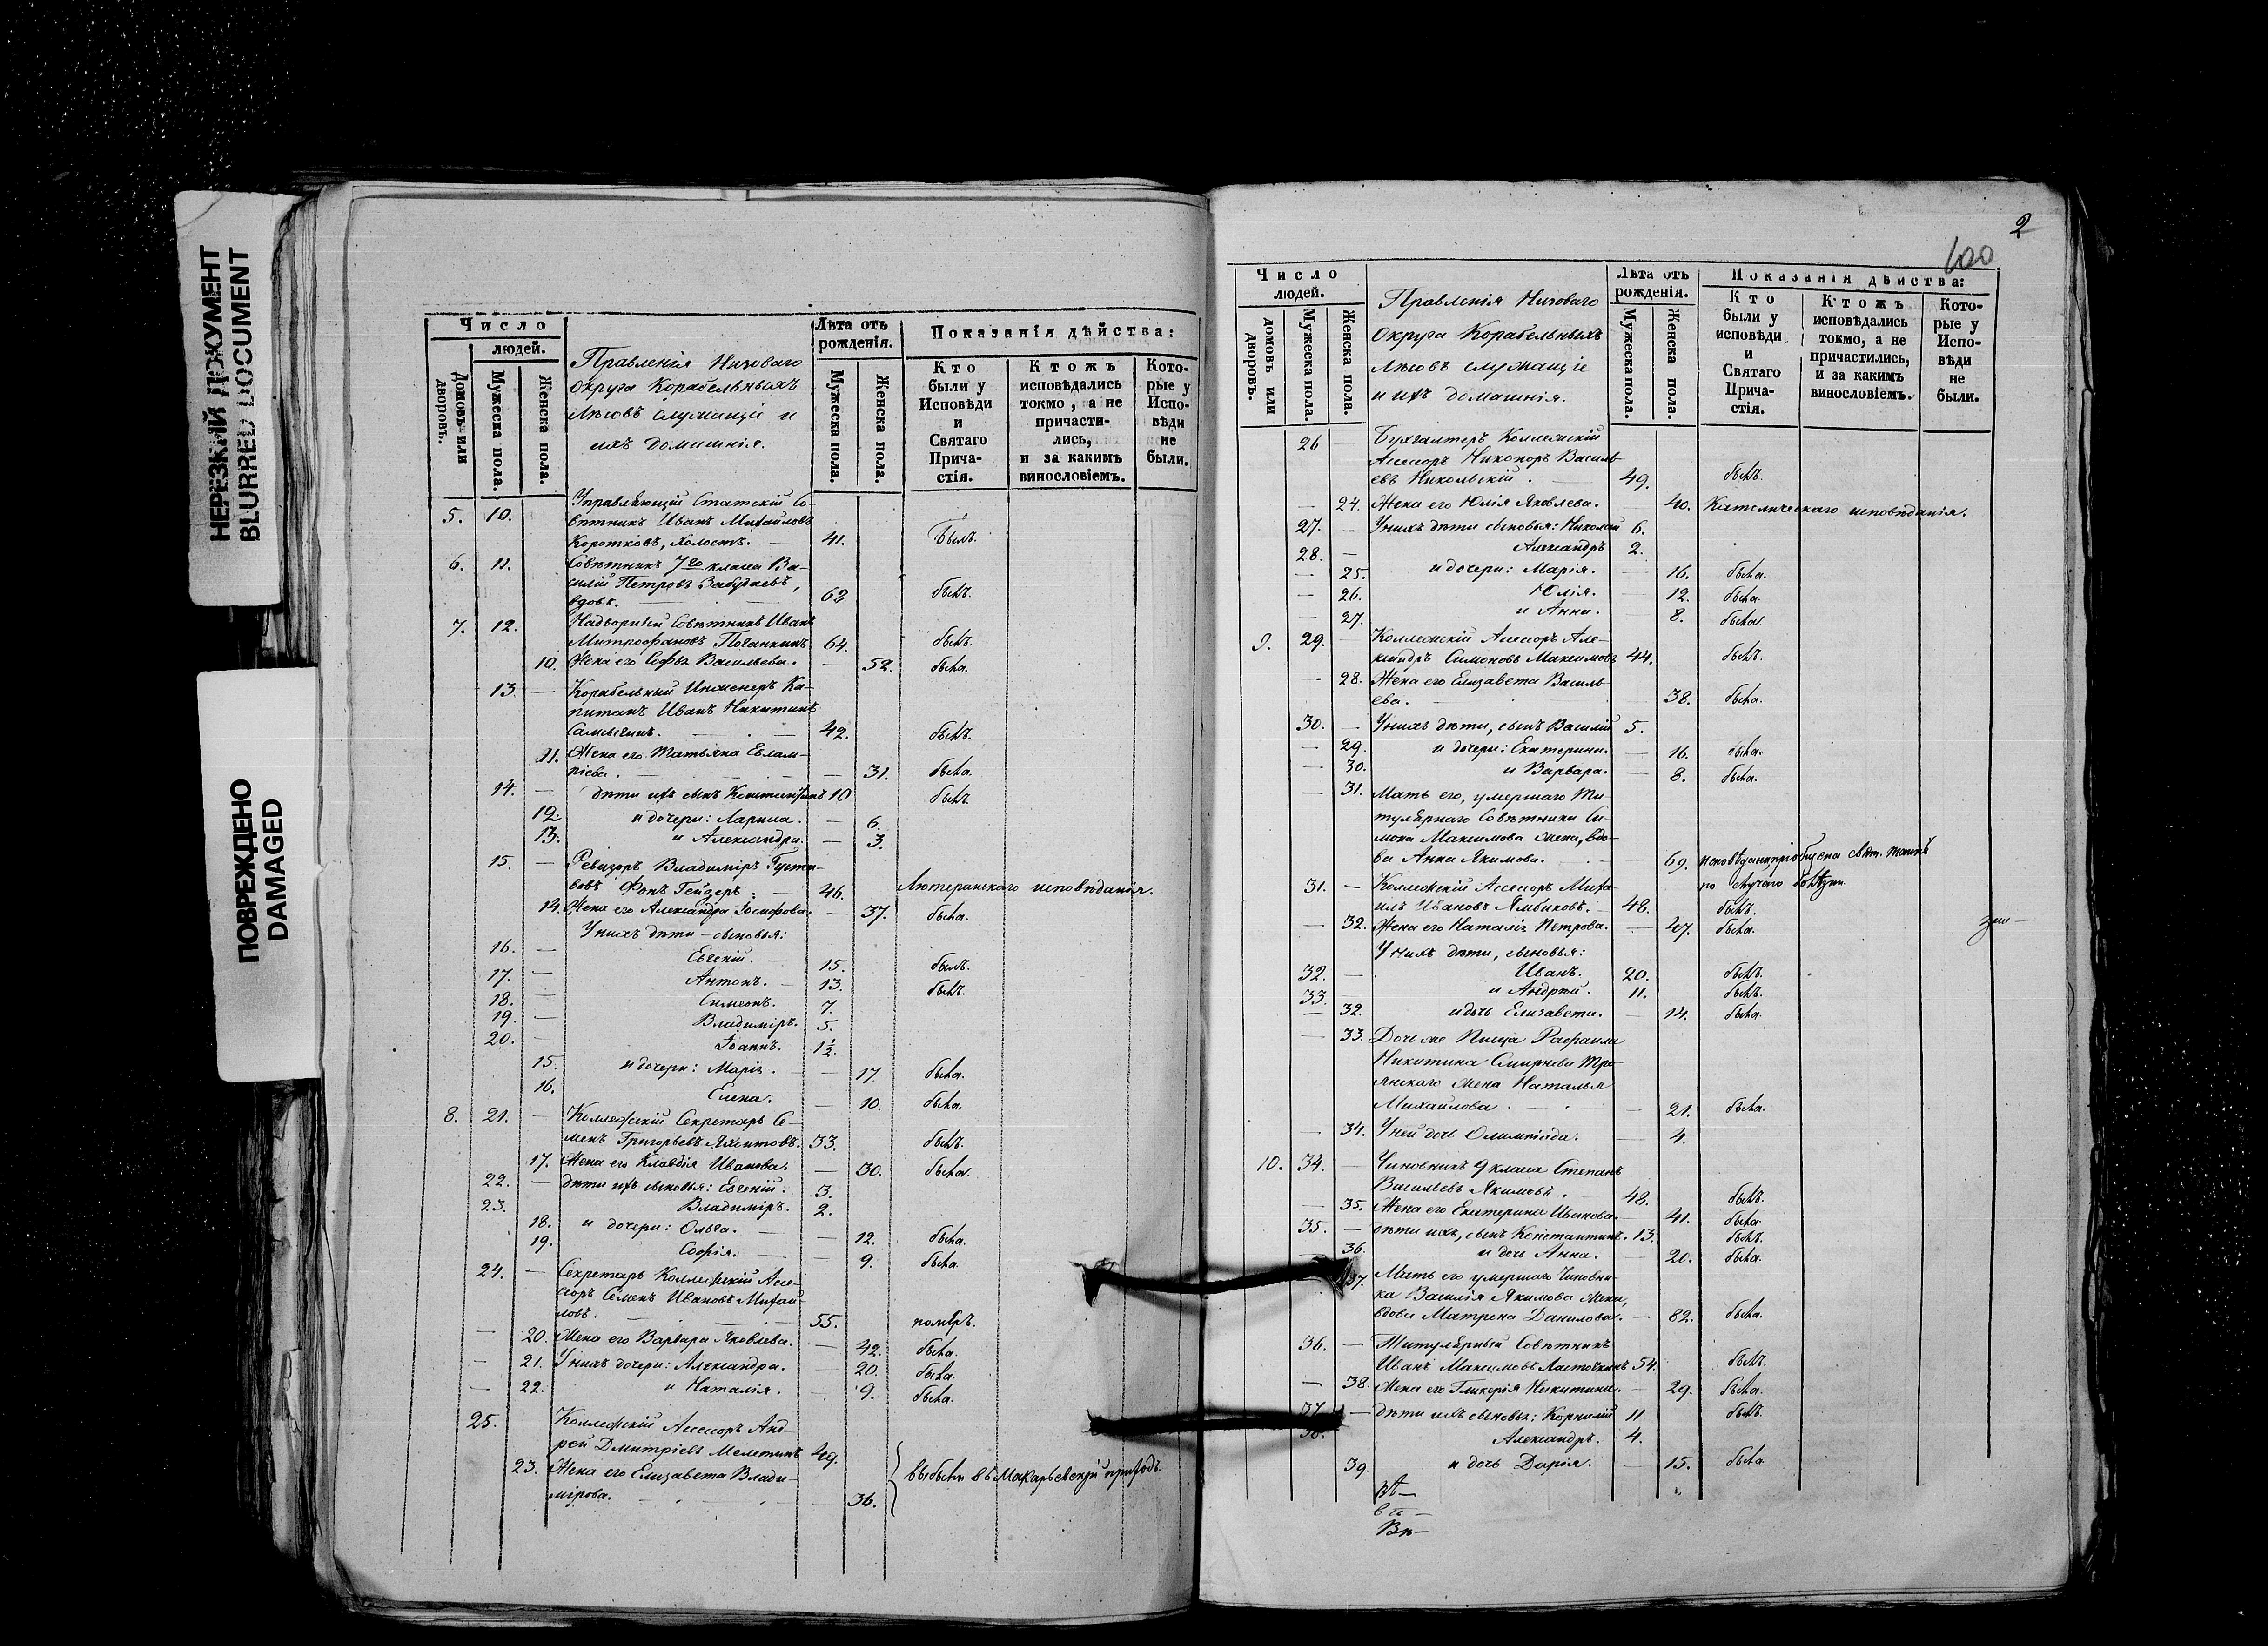 НЕРЕЗКИЙ ДОКУМЕНТ
BLURRED DOCUMENT
ПОВРЕЖДЕНО
DAMAGED
Число
людей.
Домовъ или дворовъ.
Мужеска пола.
Женска пола.
Правленія Низоваго
Округа Корабельныхъ
Лѣсовъ служащіе и
ихъ домашнія.
Лѣта отъ
рожденія.
Мужеска пола.
Женска пола.
Показанія дѣйства:
Кто
были у
Исповѣди
и
Святаго
Прича-
стія.
Ктожъ
исповѣдались
токмо, а не
причасти-
лись,
и за какимъ
винословіемъ.
Кото-
рые у
Испо-
вѣди
не
были.
Управляющій Статскій Со-
5. 10. вѣтникъ Иванъ Михайловъ
Коротковъ, холостъ. 41. былъ.
6. 11. Совѣтникъ 7го класса Ва-
силій Петровъ
вдовъ. 62 былъ.
7. 12. Надворный Совѣтникъ Иванъ
Митрофановъ 64. былъ.
10. Жена его Софья Васильева. — 52. была.
13. — Корабельный Инженеръ Ка-
питанъ Иванъ Никитинъ
42. былъ.
11. Жена его Татьяна Евлам-
піева. — 31. была.
14. — дѣти ихъ сынъ Константинъ 10 былъ.
12. и дочери: Лариса. — 6.
13. и Александра. — 3.
15. — Ревизоръ Владиміръ Густа-
вовъ Фонъ Гейзеръ. 46. Лютеранскаго исповѣданія.
14. Жена его Александра Іосифова. — 37. была.
У нихъ дѣти – сыновья:
16. — Евгеній. — 15. былъ.
17. — Антонъ. — 13. былъ.
18. — Симеонъ. 7.
19. — Владиміръ. 5.
20. — Іоаннъ. 1½.
15. и дочери: Марія. — 17. была.
16. Елена. — 10. была.
8. 21. — Коллежскій Секретарь Се-
менъ Григорьевъ Ахлитовъ. 33. былъ.
17. Жена его Клавдія Иванова. — 30. была.
22. — дѣти ихъ сыновья: Евгеній. 3.
23. Владиміръ. 2.
18. и дочери: Ольга. — 12. была.
19. Софія. — 9. была.
24. — Секретарь Коллежскій Ассе-
соръ Семенъ Ивановъ Михай-
ловъ. 55. померъ.
— 20. Жена его Варвара Яковлева. — 42. была.
— 21. У нихъ дочери: Александра. 20. была.
— 22. и Наталія. — 9. была.
25. Коллежскій Ассесоръ Анд-
рей Дмитріевъ 49.
23. Жена его Елизавета Влади- выбыли въ Макарьевскій приходъ.
мірова. 36.
2
600
Число
людей.
домовъ или дворовъ.
Мужеска пола.
Женска пола.
Правленія Низоваго
Округа Корабельныхъ
Лѣсовъ служащіе
и ихъ домашнія.
Лѣта отъ
рожденія.
Мужеска пола.
Женска пола.
Показанія дѣйства:
Кто
были у
исповѣди
и
Святаго
Прича-
стія.
Ктожъ
исповѣдались
токмо, а не
причастились,
и за какимъ
винословіемъ.
Кото-
рые у
Испо-
вѣди
не
были.
26 — Бухгалтеръ Коллежскій
Ассесоръ Никоноръ Василь-
евъ Никольскій. 49. былъ.
— 24. Жена его Юлія Яковлева. — 40. Католическаго исповѣданія.
27. — У нихъ дѣти сыновья: Николай 6.
28. — Александръ 2.
— 25. и дочери: Марія. — 16. была.
— 26. Юлія. — 12. была.
— 27. и Анна. — 8. была.
9. 29. — Коллежскій Ассесоръ Але-
ксандръ Симоновъ Максимовъ 44. былъ.
— 28. Жена его Елизавета Василь-
ева. 38. была.
30. — У нихъ дѣти, сынъ Василій 5.
— 29. и дочери: Екатерина. — 16. была.
— 30. и Варвара. — 8. была.
— 31. Мать его, умершаго Ти-
тулярнаго Совѣтника Си-
мона Максимова жена, вдо-
ва Анна Якимова. — 69. исповѣдана и пріобщена свят. Таинъ
31. — Коллежскій Ассесоръ Миха- по случаю болѣзни.
илъ Ивановъ Ямбиковъ. — 48. былъ.
— 32. Жена его Наталія Петрова. — 47. была.
У нихъ дѣти, сыновья:
32. — Иванъ. 20. былъ.
33. — и Андрей. 11. былъ.
— 32. и дочь Елизавета. — 14. была.
— 33. Дочь же Писца Рафаила
Никитина Смирнова Тро-
янскаго жена Наталья
Михайлова. — 21. была.
— 34. У ней дочь Олимпіада. — 4.
10. 34. — Чиновникъ 9 класса Степанъ
Васильевъ Якимовъ. 48. былъ.
— 35. Жена его Екатерина Иванова. — 41. была.
35. — дѣти ихъ, сынъ Константинъ. 13. былъ.
— 36. и дочь Анна. — 20. была.
37. Мать его умершаго Чиновни-
ка Василія Якимова жена,
вдова Матрена Данилова. — 82. была.
36. — Титулярный Совѣтникъ
Иванъ Максимовъ Ласточкинъ 54. былъ.
— 38. Жена его Гликерія Никитина. — 29. была.
37. — дѣти ихъ сыновья: Корнилій 11 былъ.
38. Александръ. 4.
39. и дочь Дарія. — 15. была.